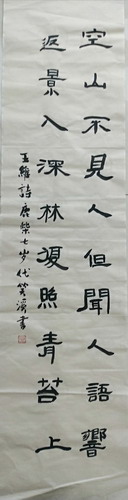 空山不見人但聞人語響
返景入深林復照青苔上
王維詩鹿柴七岁代笑溪書